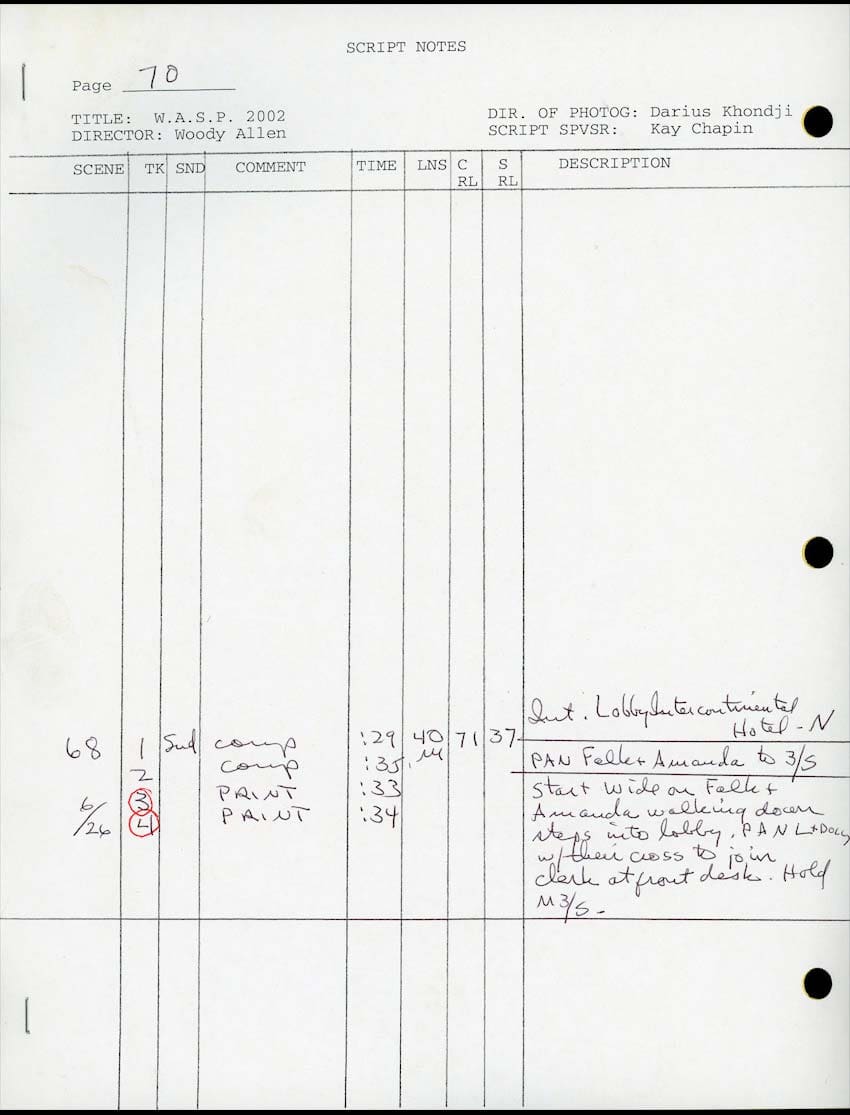 SCRIPT NOTES
Page 70
TITLE: W.A.S.P. 2002
DIR. OF PHOTOG: Darius Khondji
DIRECTOR: Woody Allen
SCRIPT SPVSR: Kay Chapin
SCENE TK SND COMMENT TIME LNS C RL S RL DESCRIPTION
Int. Lobby Intercontinental
Hotel - N
68 1 Snd comp :29 40 71 37
M
2 comp :35
PAN Falk + Amanda to 3/S
3 PRINT :33
Start wide on Falk +
6/26 4 PRINT :34
Amanda walking down
steps into lobby, PAN L + Dolly
w/ their cross to join
clerk at front desk. Hold
M 3/S -